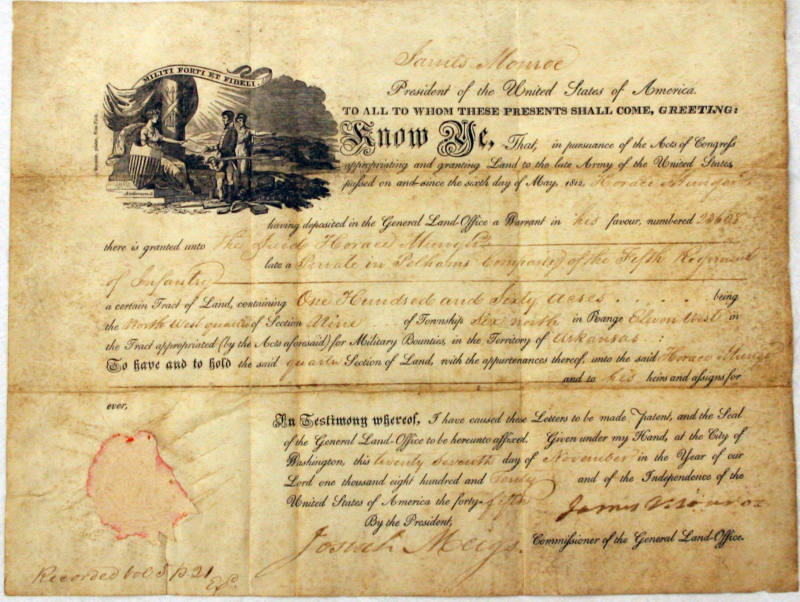 MILITI FORTI ET FIDELI.
James Monroe
President of the United States of America.
TO ALL TO WHOM THESE PRESENTS SHALL COME, GREETING:
Know Ye, That, in pursuance of the Acts of Congress
appropriating and granting Land to the late Army of the United States,
passed on and since the sixth day of May, 1812, Horace Munger
having deposited in the General Land-Office a Warrant in his favour, numbered
there is granted unto The Said Horace Munger
late a Private in Pelhams Company of the Fifth Regiment
of Infantry
a certain Tract of Land, containing One Hundred and Sixty Acres being
the North West quarter of Section Nine of Township Six north in Range Eleven West in
the Tract appropriated (by the Acts aforesaid) for Military Bounties, in the Territory of Arkansas:
To have and to hold the said quarter Section of Land, with the appurtenances thereof, unto the said Horace Munger
and to his heirs and assigns for
ever,
In Testimony whereof, I have caused these Letters to be made Patent, and the Seal
of the General Land-Office to be hereunto affixed. Given under my Hand, at the City of
Washington, this twenty seventh day of November in the Year of our
Lord one thousand eight hundred and Twenty and of the Independence of the
United States of America the forty-fifth
James Monroe
By the President,
Josiah Meigs.
Commissioner of the General Land-Office.
Recorded vol. 5 p. 21